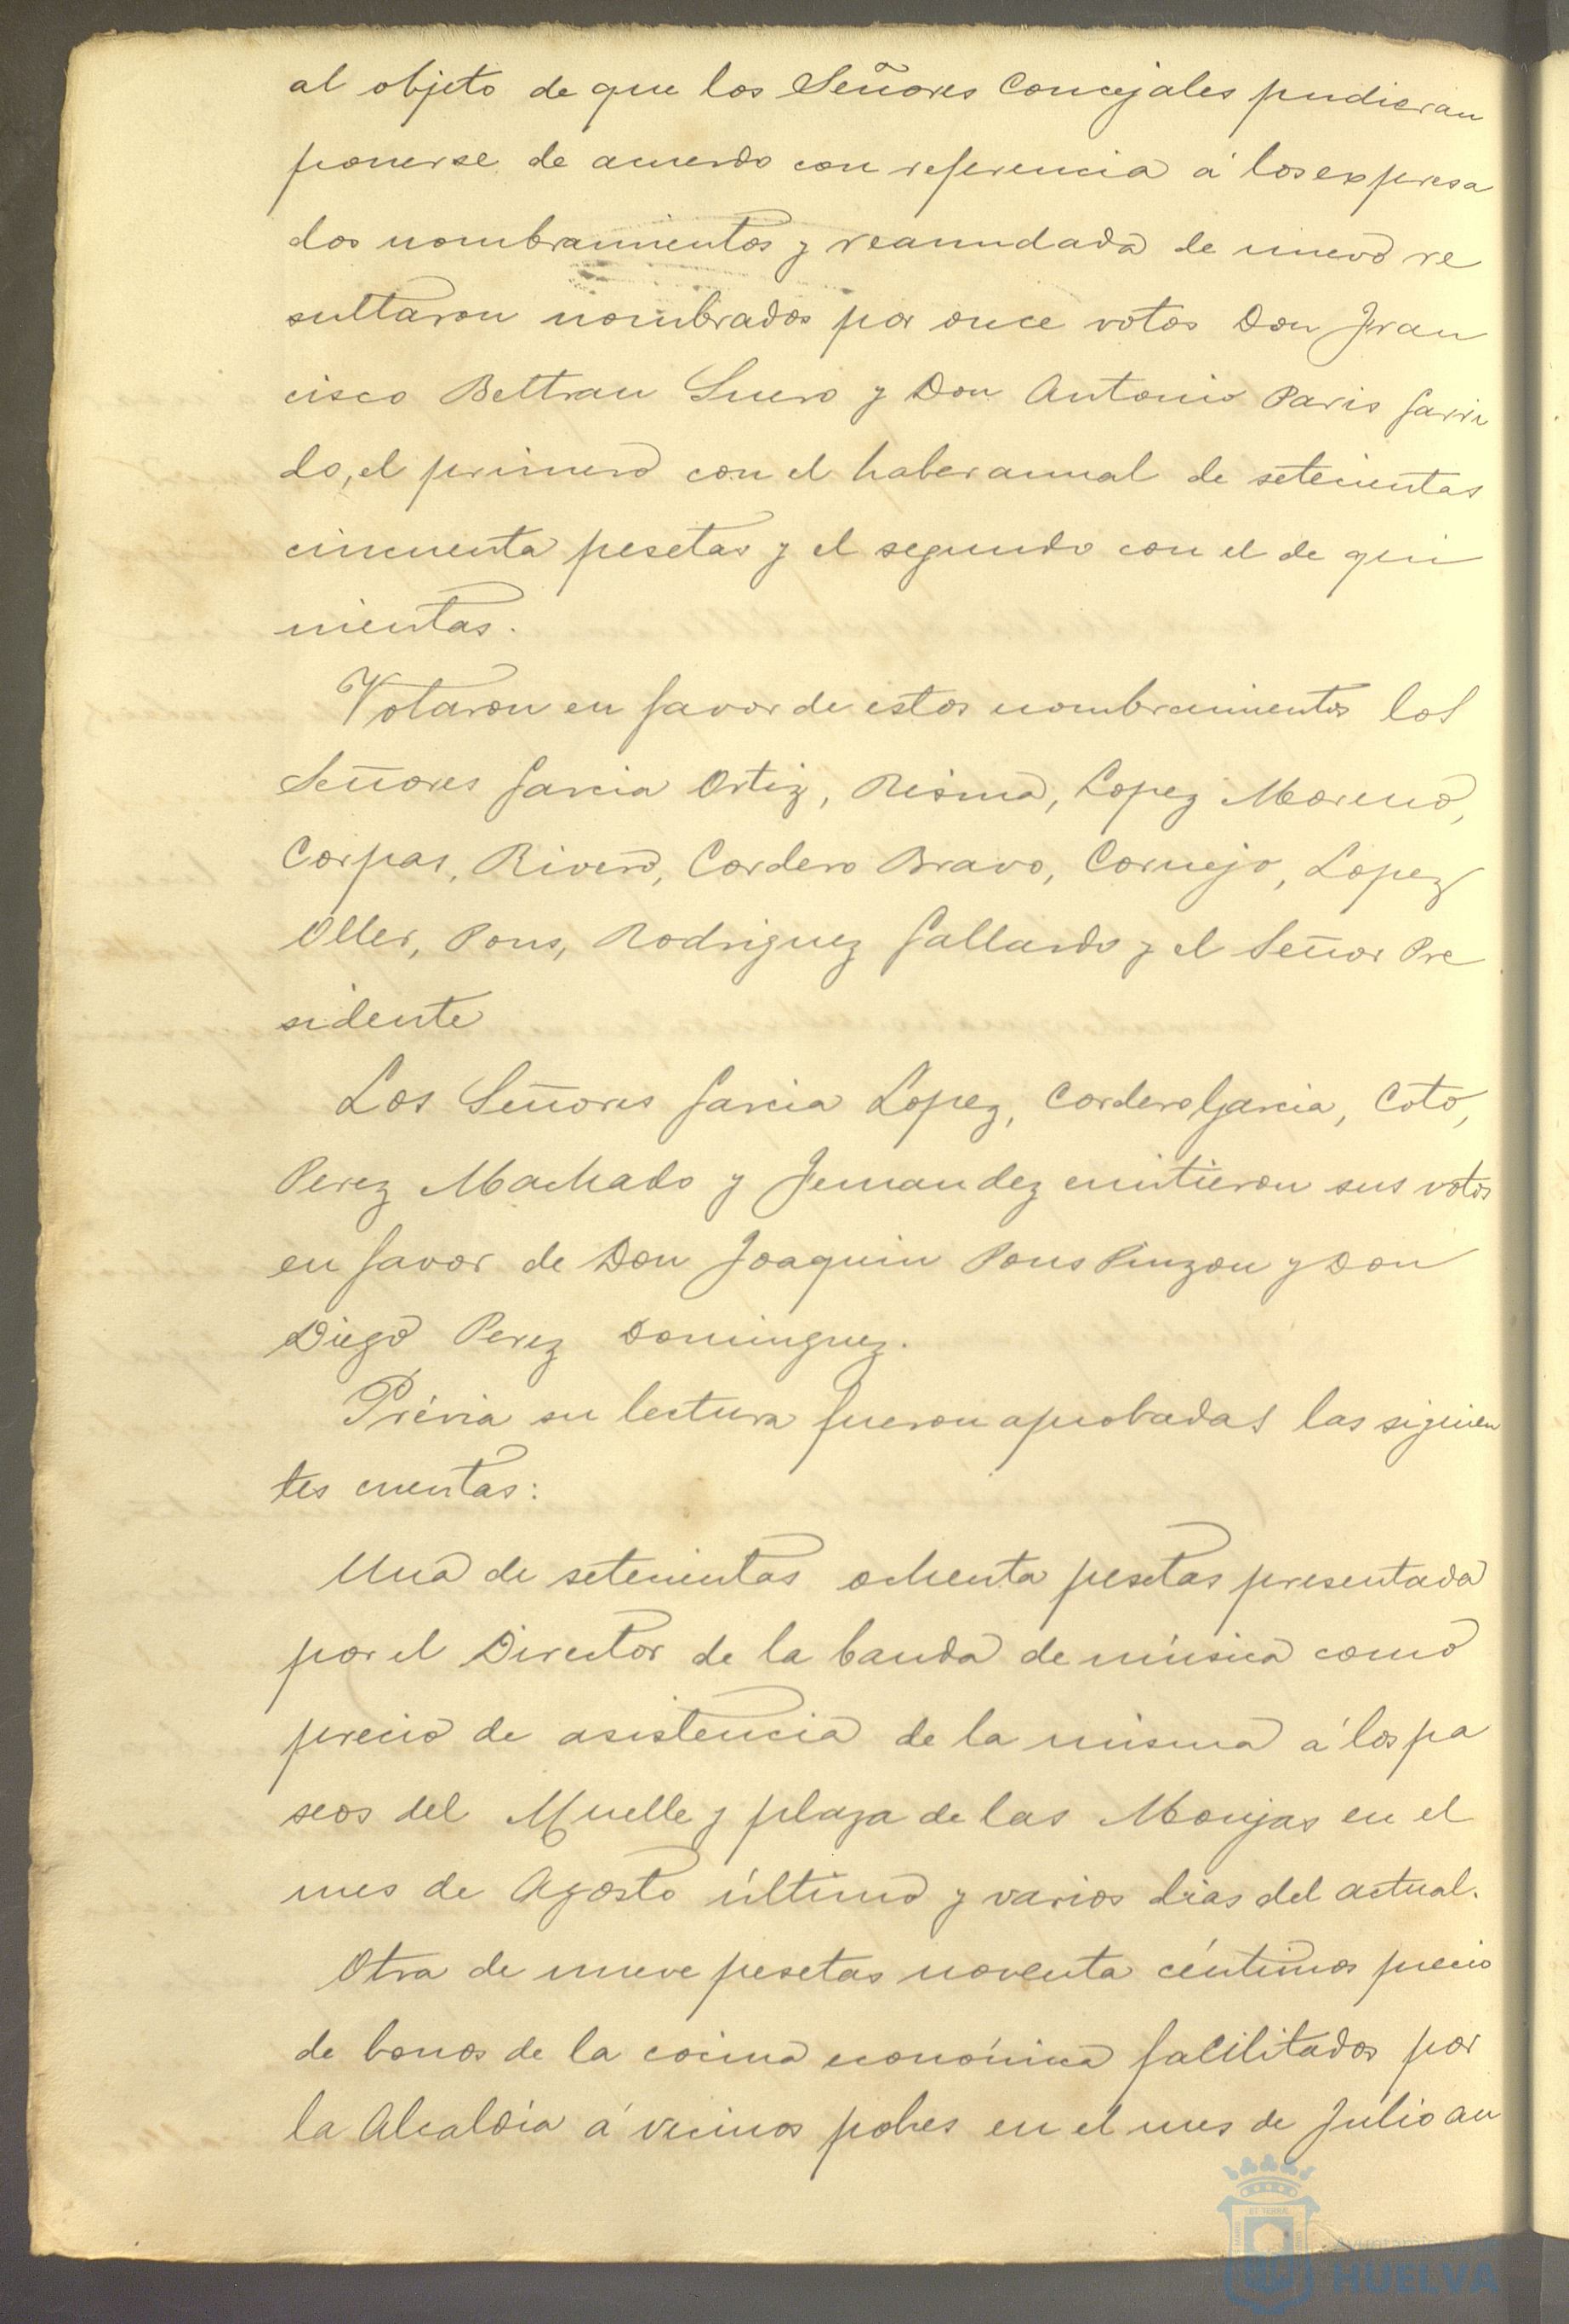 al objeto de que los Señores Concejales pudieran
ponerse de acuerdo con referencia á los expresa
dos nombramientos y reanudada de nuevo re
sultaron nombrados por once votos Don Fran
cisco Beltran Suero y Don Antonio Paris Garri
do, el primero con el haber anual de setecientas
cincuenta pesetas y el segundo con el de qui
nientas.
Votaron en favor de estos nombramientos los
Señores Garcia Ortiz, Risma, Lopez Moreno,
Corpas, Rivero, Cordero Bravo, Cornejo, Lopez
Oller, Pons, Rodriguez Gallardo y el Señor Pre
sidente
Los Señores Garcia Lopez, Cordero Garcia, Coto,
Perez Machado y Fernandez emitieron sus votos
en favor de Don Joaquin Pons Pinzon y Don
Diego Perez Dominguez.
Prévia su lectura fueron aprobadas las siguien
tes cuentas:
Una de setecientas ochenta pesetas presentada
por el Director de la banda de música como
precio de asistencia de la misma á los pa
seos del Muelle y plaza de las Monjas en el
mes de Agosto último y varios dias del actual.
Otra de nueve pesetas noventa céntimos precio
de bonos de la cocina económica facilitados por
la Alcaldía á vecinos pobres en el mes de Julio an
HUELVA